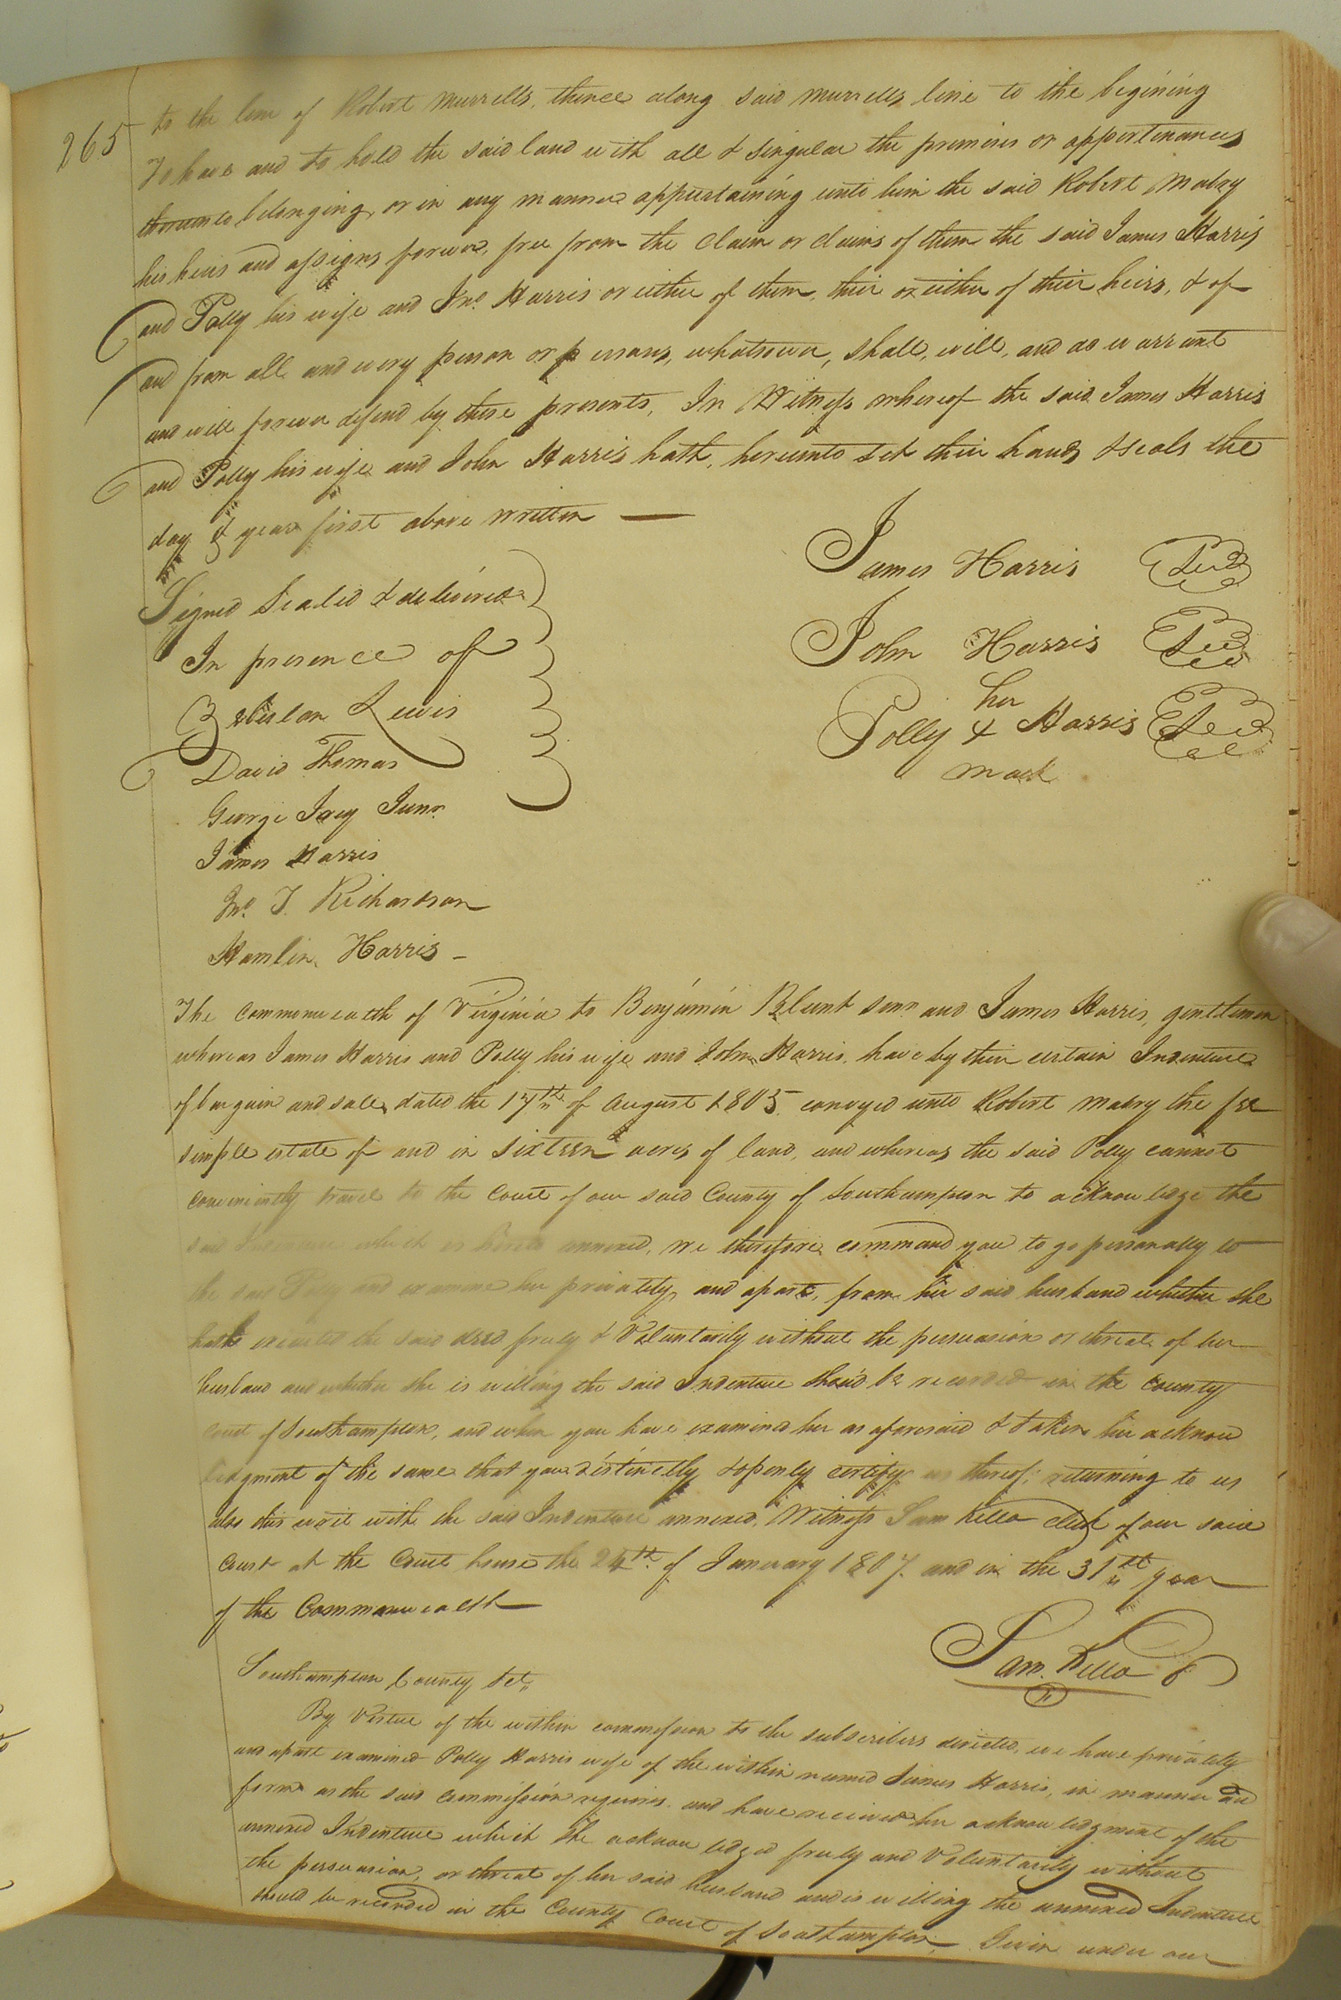 265
to the line of Robert Murrells, thence along said Murrells line to the begining
To have and to hold the said land with all & singular the premises or appertinances
thereunto belonging, or in any manner appertaining unto him the said Robert Mabry
his heirs and assigns forever, free from the claim or claims of them the said James Harris
and Polly his wife and Jno. Harris or either of them, their or either of their heirs, & of
and from all and every person or persons, whatsoever, shall, will, and do warrant
and will forever defend by these presents, In Witness whereof the said James Harris
and Polly his wife and John Harris hath, hereunto set their hands & seals the
day & year first above written —
James Harris Seal
Signed Sealed & delivered
John Harris Seal
In presence of
her
Polly + Harris Seal
mark
Zebulon Lewis
David Thomas
George Ivey Junr.
James Harris
Jno. T. Richardson
Hamlin Harris -
The commonwealth of Virginia to Benjamin Blunt senr and James Harris, gentlemen
whereas James Harris and Polly his wife and John Harris, have by their certain Indenture
of bargain and sale, dated the 17th of August 1805 conveyed unto Robert Mabry the fee
simple estate of and in sixteen acres of land, and whereas the said Polly cannot
conveniently travel to the Court of our said County of Southampton to acknowledge the
said Indenture which is hereto annexed, we therefore command you to go personally to
the said Polly and examine her privately, and apart, from her said husband whether she
hath executed the said deed freely & Voluntarily without the persuasion or threat of her
husband and whether she is willing the said Indenture should be recorded in the County
Court of Southampton, and when you have examined her as aforesaid & taken her acknow
ledgment of the same that you distinctly & openly certify us thereof; returning to us
also this writ with the said Indenture annexed. Witness Sam Kello clerk of our said
Court at the Court house the 24th of January 1807 and in the 31st year
of the Commonwealth
Sam. Kello
Southampton County Sct,,
By Virtue of the within commission to the subscribers directed, we have privately
and apart examined Polly Harris wife of the within named James Harris, in manner and
form as the said commission requires and have received her acknowledgment of the
annexed Indenture which she acknowledged freely and Voluntarily without
the persuasion, or threat of her said husband and is willing the annexed Indenture
should be recorded in the County Court of Southampton, Given under our